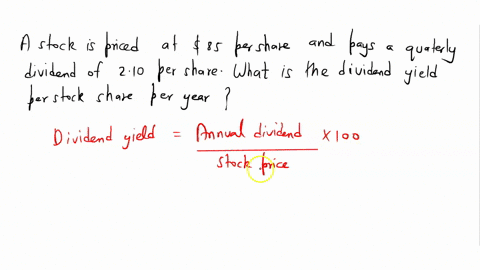 A stock is priced at $85 per share and pays a quaterly
dividend of 2.10 per share. What is the dividend yield
per stock share per year?
Dividend yield = Annual dividend × 100
stock price